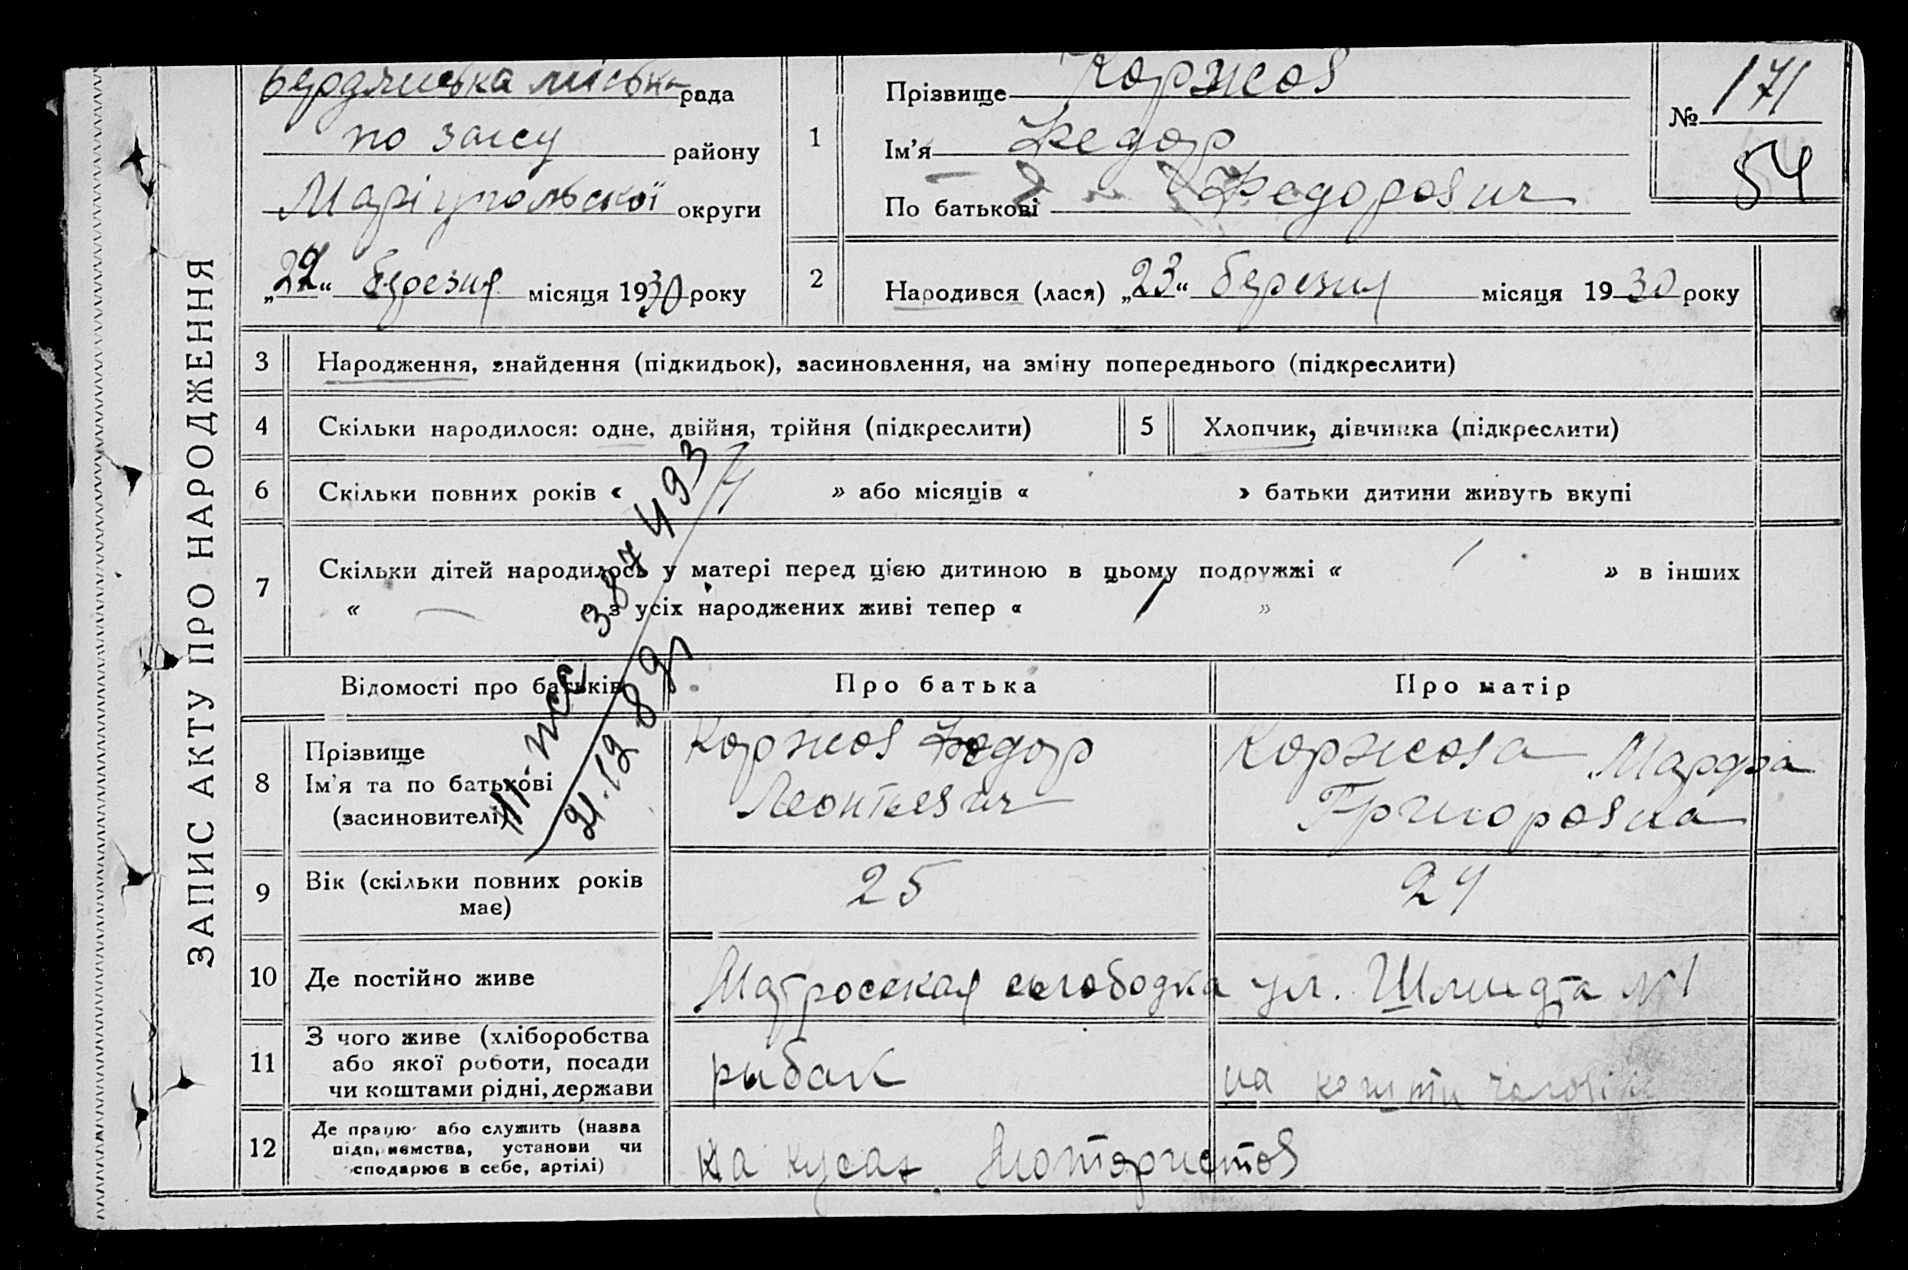 ЗАПИС АКТУ ПРО НАРОДЖЕННЯ
міська рада
по загсу району
Маріупольської округи
„ “ березня місяця 1930 року
1
Прізвище Коржов
Ім’я Федор
По батькові Федорович
№ 171
54
2
Народився (лася) „23“ березня місяця 1930 року
3 Народження, знайдення (підкидьок), засиновлення, на зміну попереднього (підкреслити)
4 Скільки народилося: одне, двійня, трійня (підкреслити)
5 Хлопчик, дівчинка (підкреслити)
6 Скільки повних років « » або місяців « » батьки дитини живуть вкупі
7 Скільки дітей народилось у матері перед цією дитиною в цьому подружжі « / » в інших
« — » з усіх народжених живі тепер « / »
387493
21.12.89
Відомості про батьків
Про батька
Про матір
8
Прізвище
Ім’я та по батькові
(засиновителі)
Коржов Федор
Леонтьевич
Коржова Марфа
Григоровна
9
Вік (скільки повних років
має)
25
24
10 Де постійно живе
Матросская слободка ул. Шмидта №1
11
З чого живе (хліборобства
або якої роботи, посади
чи коштами рідні, держави
рыбак
на кошти
12
Де працює або служить (назва
підприємства, установи чи
сподарює в себе, артілі)
на